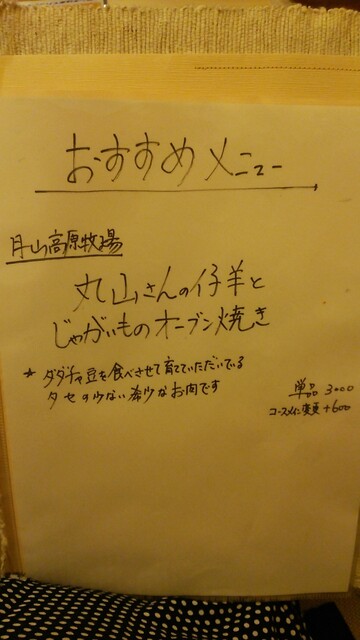 おすすめメニュー
月山高原牧場
丸山さんの仔羊と
じゃがいものオーブン焼き
* ダダチャ豆を食べさせて育てていただいている
クセの少ない希少なお肉です
単品 3000
コースメイン変更 +600